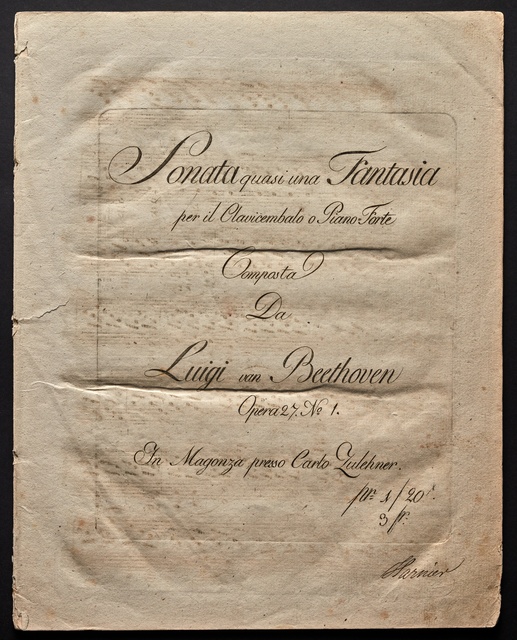 Sonata quasi una Fantasia
per il Clavicembalo o Piano-Forte
Composta
Da
Luigi van Beethoven
Opera 27. No 1.
In Magonza presso Carlo Zulehner.
pr: 1/20
3 fr.